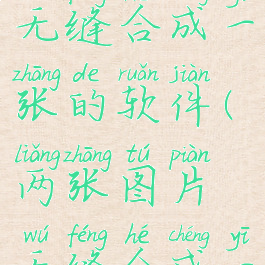 无缝合成一
zhāng de ruǎn jiàn
张的软件(
liǎng zhāng tú piàn
两张图片
wú féng hé chéng yī
无缝合成一